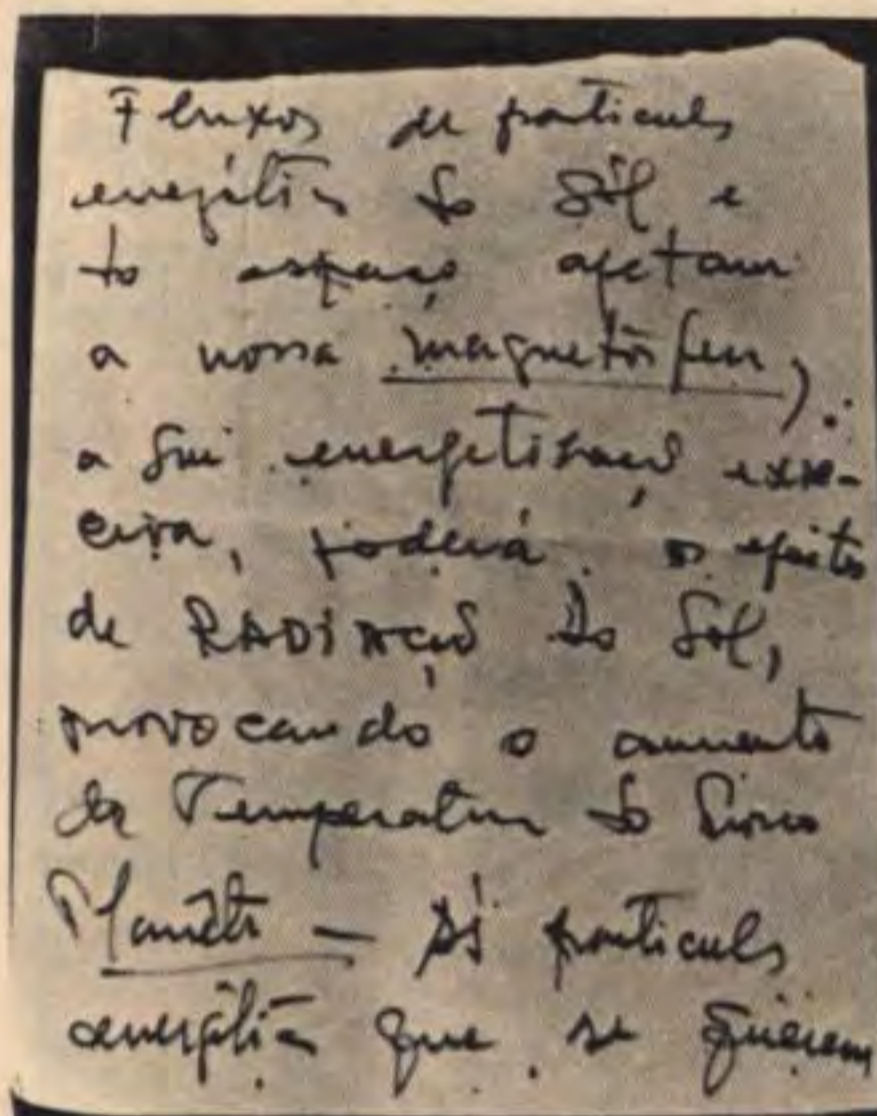 Fluxos de particulas
energéticas do Sól e
do espaço afetam
a nossa magnetósfera,
a sua energetisação exce-
civa, poderá os efeitos
de RADIAÇÃO do Sol,
provocando o aumento
da Temperatura do
Planêta — As particulas
energéticas que se